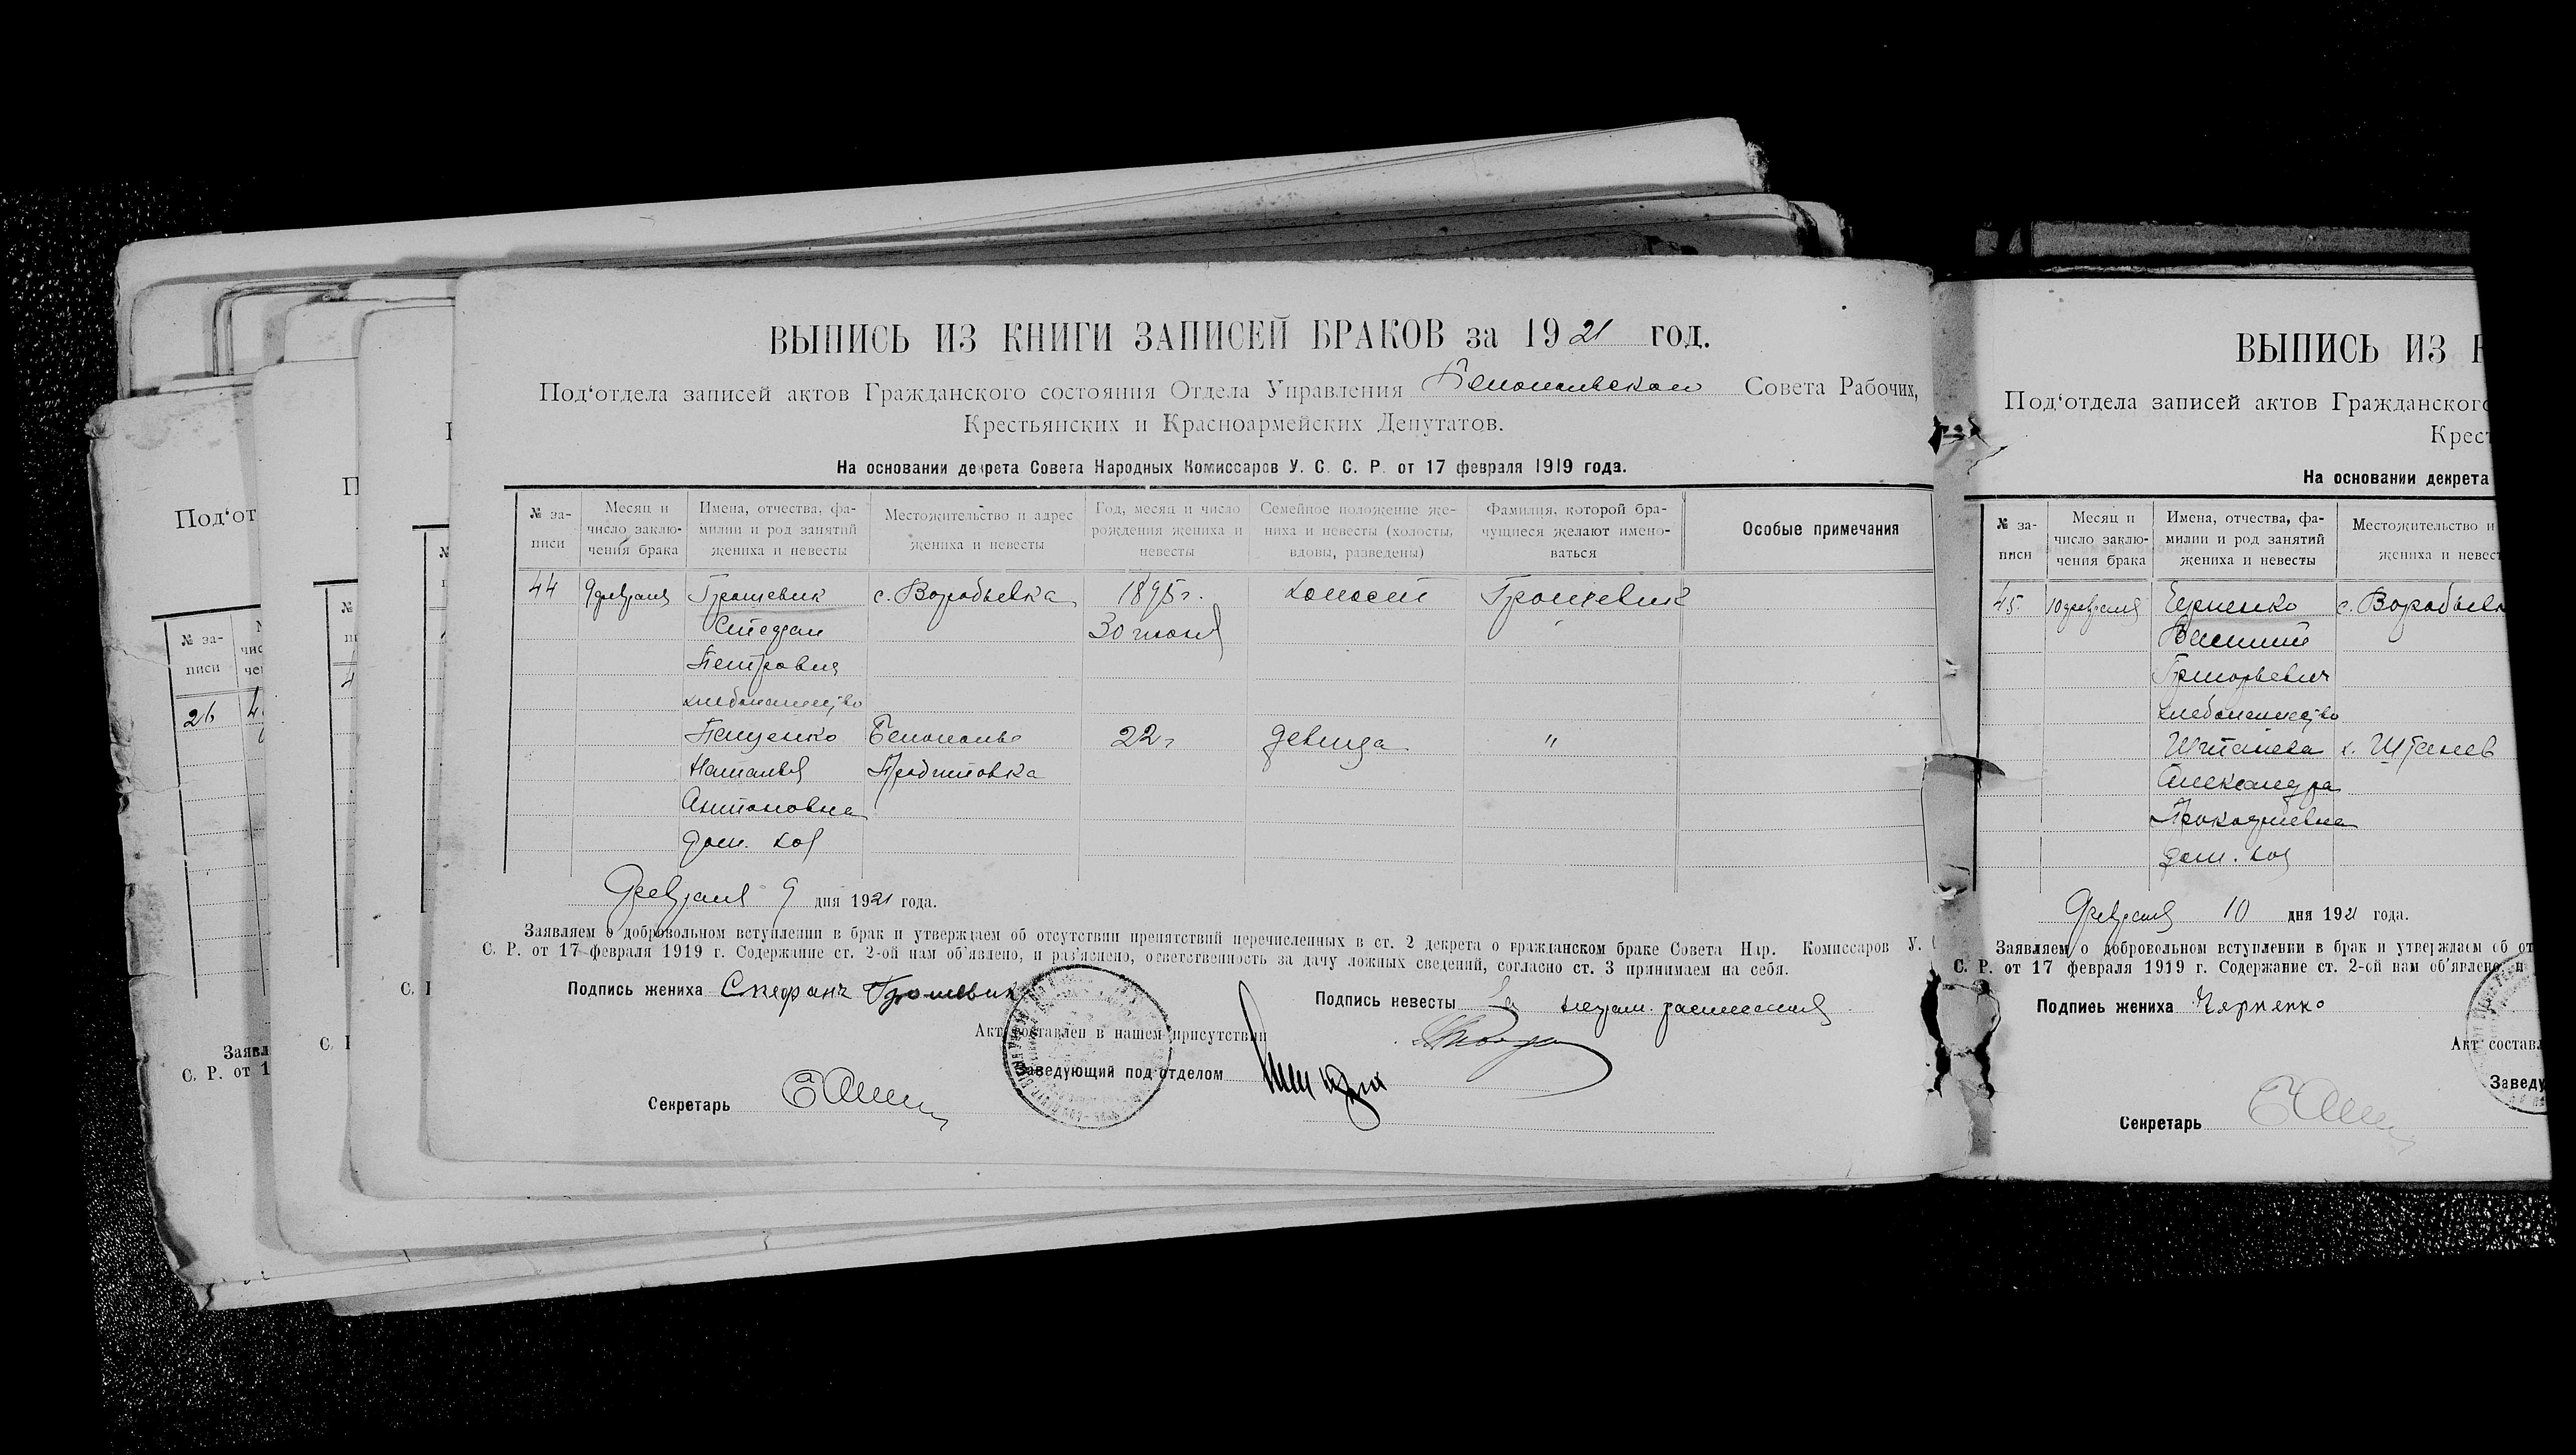 ВЫПИСЬ ИЗ КНИГИ ЗАПИСЕЙ БРАКОВ за 1921 год.
Под‘отдела записей актов Гражданского состояния Отдела Управления Совета Рабочих,
Крестьянских и Красноармейских Депутатов.
На основании декрета Совета Народных Комиссаров У. С. С. Р. от 17 февраля 1919 года.
№ за-
писи
Месяц и
число заклю-
чения брака
Имена, отчества, фа-
милии и род занятий
жениха и невесты
Местожительство и адрес
жениха и невесты
Год, месяц и число
рождения жениха и
невесты
Семейное положение же-
ниха и невесты (холосты,
вдовы, разведены)
Фамилия, которой бра-
чущиеся желают имено-
ваться
Особые примечания
44 9 февраля с. Воробьевка 1895 г. холост
Стефан 30 июня
Петрович
хлебопашество
22 г девица "
Наталья
Антоновна
дом. хоз
Февраля 9 дня 1921 года.
Заявляем о добровольном вступлении в брак и утверждаем об отсутствии препятствий перечисленных в ст. 2 декрета о гражданском браке Совета Нар. Комиссаров У.
С. Р. от 17 февраля 1919 г. Содержание ст. 2-ой нам об‘явлено, и раз‘яснено, ответственность за дачу ложных сведений, согласно ст. 3 принимаем на себя.
Подпись жениха Стефанъ
Подпись невесты За
Акт составлен в нашем присутствии
Заведующий под‘отделом
Секретарь
ВЫПИСЬ ИЗ
Под‘отдела записей актов Гражданского
Крест
На основании декрета
№ за-
писи
Месяц и
число заклю-
чения брака
Имена, отчества, фа-
милии и род занятий
жениха и невесты
Местожительство и
жениха и невест
45 10 февраля Черненко с. Воробьевк
Василий
Григорьевич
хлебопашество
Александра
Прокофиевна
дом. хоз
Февраля 10 дня 1921 года.
Заявляем о добровольном вступлении в брак и утверждаем об от
С. Р. от 17 февраля 1919 г. Содержание ст. 2-ой нам об‘явлено, и
Подпись жениха Черненко
Акт составл
Заведу
Секретарь
Под‘от
№ за-
писи
26
Заявл
С. Р. от 1